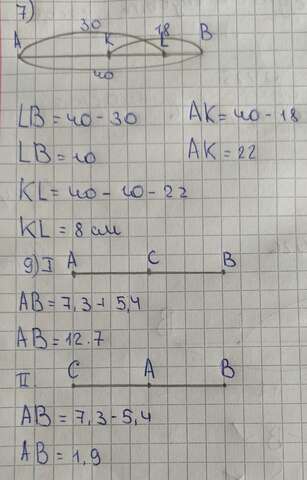 7)
30
18
A K L B
40
LB = 40 - 30 AK = 40 - 18
LB = 10 AK = 22
KL = 40 - 10 - 22
KL = 8 см
9) I A C B
AB = 7,3 + 5,4
AB = 12.7
II C A B
AB = 7,3 - 5,4
AB = 1,9